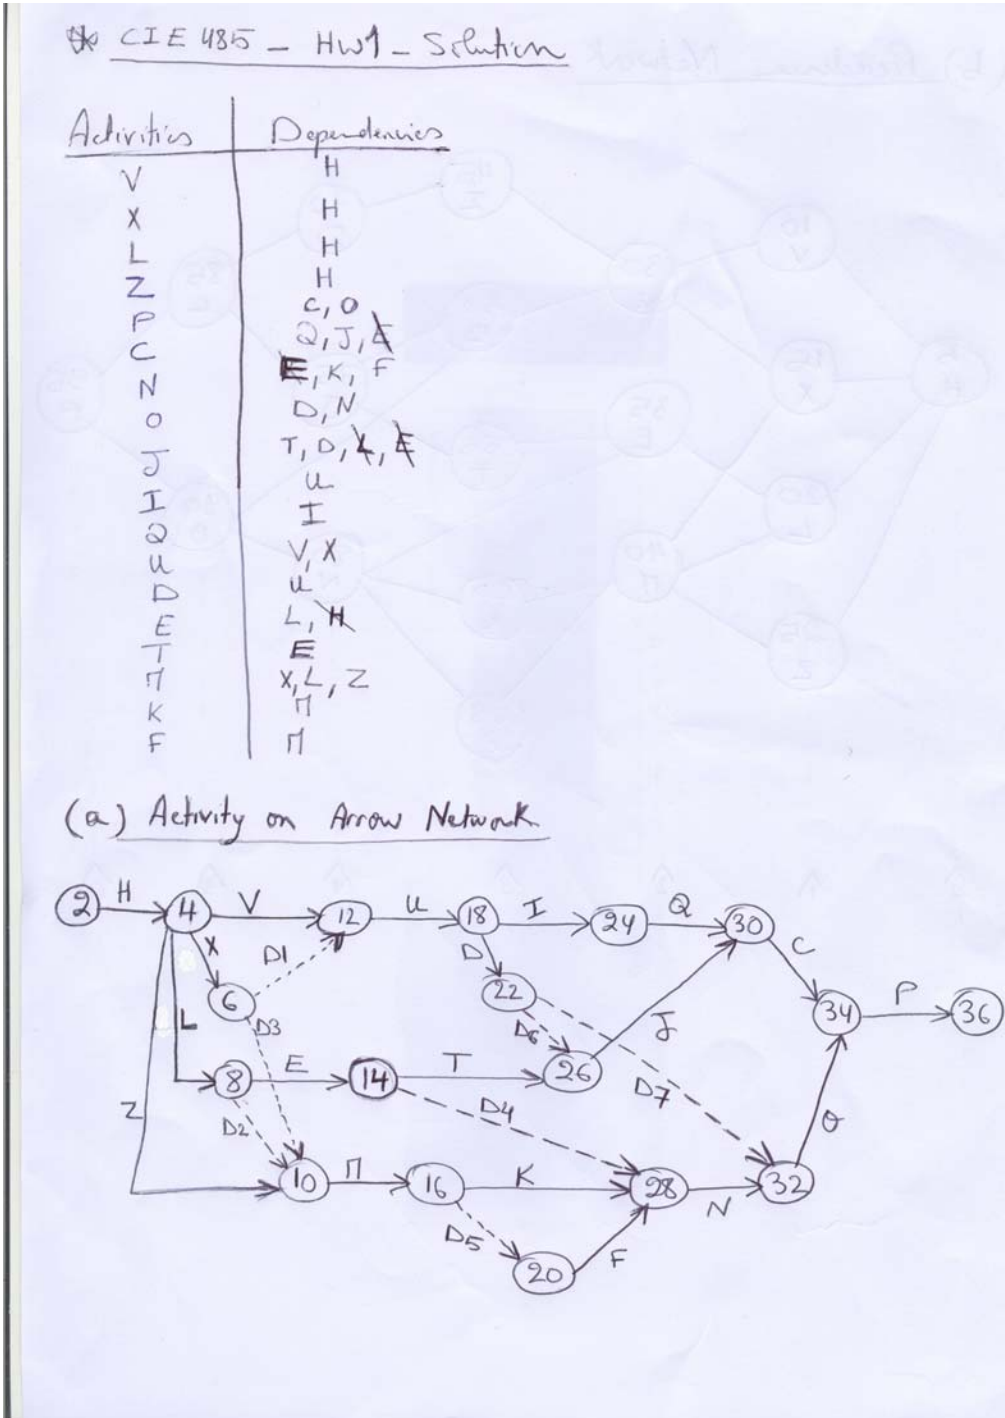 CIE 485 - HW1 - Solution
Activities Dependencies
V H
X H
L H
Z H
P C, O
C Q, J, E
N E, K, F
O D, N
J T, D, L, E
I U
Q I
U V, X
D U
E L, H
T E
M X, L, Z
K M
F M
(a) Activity on Arrow Network
2 H 4 V 12 U 18 I 24 Q 30
X D1 D C
6 22 P
L D3 D6 J 34 36
8 E 14 T 26
Z D2 D4 D7 O
10 M 16 K 28 N 32
D5 F
20